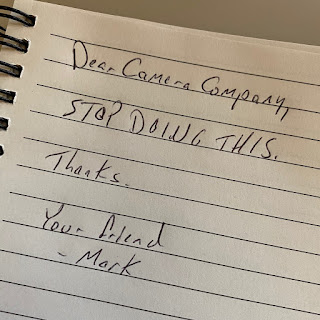 Dear Camera Company,
STOP DOING THIS.
Thanks.
Your friend
- Mark